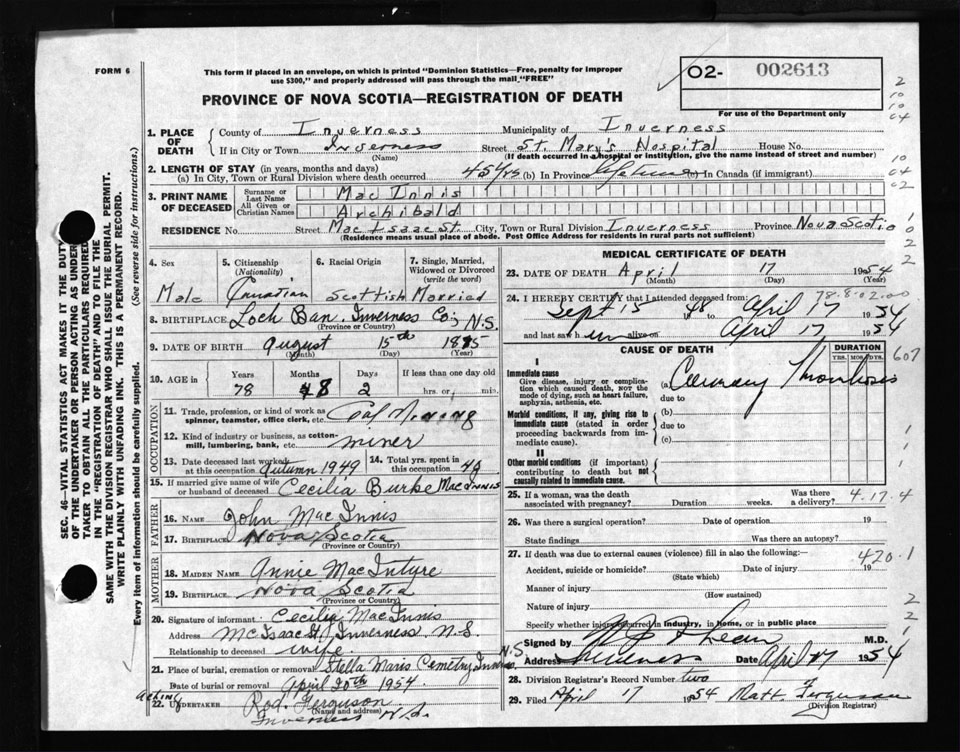 FORM 6
This form if placed in an envelope, on which is printed "Dominion Statistics—Free, penalty for improper
use $300," and properly addressed will pass through the mail "FREE"
O2- 002613
PROVINCE OF NOVA SCOTIA—REGISTRATION OF DEATH
For use of the Department only
1. PLACE OF DEATH
County of Inverness Municipality of Inverness
If in City or Town Inverness (Name) Street St. Mary's Hospital House No.
(If death occurred in a hospital or institution, give the name instead of street and number)
2. LENGTH OF STAY (in years, months and days)
(a) In City, Town or Rural Division where death occurred 45 yrs (b) In Province lifetime (c) In Canada (if immigrant)
3. PRINT NAME OF DECEASED
Surname or Last Name Mac Innis
All Given or Christian Names Archibald
RESIDENCE No. Street Mac Isaac St. City, Town or Rural Division Inverness Province Nova Scotia
(Residence means usual place of abode. Post Office Address for residents in rural parts not sufficient)
SEC. 46—VITAL STATISTICS ACT MAKES IT THE DUTY
OF THE UNDERTAKER OR PERSON ACTING AS UNDER-
TAKER TO OBTAIN ALL THE PARTICULARS REQUIRED
IN THE "REGISTRATION OF DEATH" AND TO FILE THE
SAME WITH THE DIVISION REGISTRAR WHO SHALL ISSUE THE BURIAL PERMIT.
WRITE PLAINLY WITH UNFADING INK. THIS IS A PERMANENT RECORD.
Every item of information should be carefully supplied. (See reverse side for instructions.)
4. Sex Male
5. Citizenship (Nationality) Canadian
6. Racial Origin Scottish
7. Single, Married, Widowed or Divorced (write the word) Married
8. BIRTHPLACE Loch Ban. Inverness Co; N.S.
(Province or Country)
9. DATE OF BIRTH August 15th 1875
(Month) (Day) (Year)
10. AGE in Years 78 Months 8 Days 2 If less than one day old hrs. or min.
OCCUPATION
11. Trade, profession, or kind of work as spinner, teamster, office clerk, etc. Coal Mining
12. Kind of industry or business, as cotton-mill, lumbering, bank, etc. miner
13. Date deceased last worked at this occupation Autumn 1949
14. Total yrs. spent in this occupation
15. If married give name of wife or husband of deceased Cecilia Burke MacInnis
FATHER
16. NAME John Mac Innis
17. BIRTHPLACE Nova Scotia
(Province or Country)
MOTHER
18. MAIDEN NAME Annie MacIntyre
19. BIRTHPLACE Nova Scotia
(Province or Country)
20. Signature of informant Cecilia MacInnis
Address McIsaac St Inverness N.S.
Relationship to deceased wife
21. Place of burial, cremation or removal Stella Maris Cemetery Inverness N.S.
Date of burial or removal April 20th 1954
22. Acting UNDERTAKER Rod. Ferguson
(Name and address)
Inverness N.S.
MEDICAL CERTIFICATE OF DEATH
23. DATE OF DEATH April 17 1954
(Month) (Day)
24. I HEREBY CERTIFY that I attended deceased from
78-8-02.00
Sept 15 1948 to April 17 1954
and last saw him alive on April 17 1954
CAUSE OF DEATH
DURATION
YRS. MOS. DYS.
607
I
Immediate cause
Give disease, injury or complication which caused death, NOT the mode of dying, such as heart failure, asphyxia, asthenia, etc.
(a) Coronary Thrombosis
due to
Morbid conditions, if any, giving rise to immediate cause (stated in order proceeding backwards from immediate cause).
(b)
due to
(c)
II
Other morbid conditions (if important) contributing to death but not causally related to immediate cause.
25. If a woman, was the death associated with pregnancy? Duration weeks. Was there a delivery? 4.17.4
26. Was there a surgical operation? Date of operation 19
State findings Was there an autopsy?
27. If death was due to external causes (violence) fill in also the following:—
420.1
Accident, suicide or homicide? Date of injury 19
(State which)
Manner of injury
(How sustained)
Nature of injury
Specify whether injury occurred in industry, in home, or in public place
Signed by M.D.
Address Inverness Date April 17 1954
28. Division Registrar's Record Number two
29. Filed April 17 1954 Matt Ferguson
(Division Registrar)